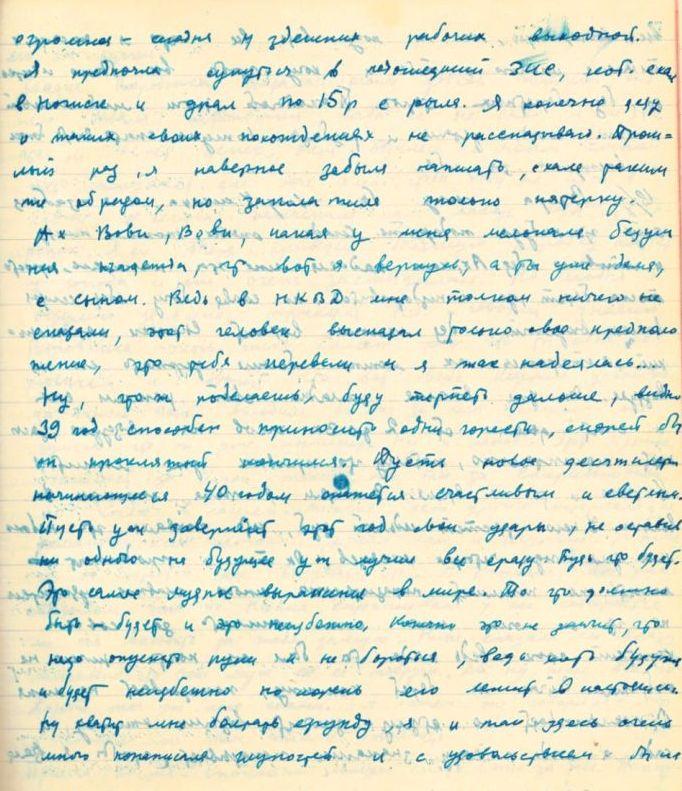 огромная - сегодня у здешних рабочих выходной.
Я предпочла сунуться в подошедший ЗИС, чтоб ехал
в Ногинск и драл по 15 р с рыла. Я конечно деду
о таких своих похождениях не рассказываю. Прош=
лый раз, я наверное забыла написать, ехала таким
же образом, но заплатила только пятерку.
Ах Вови, Вови, какая у меня мелькала безум
ная надежда, что вот я вернусь, а ты уже дома,
с сыном. Ведь в НКВД мне толком ничего не
сказали, этот человек высказал только свое предполо
жение, что тебя перевели и я так надеялась...
Ну, что ж поделаешь буду терпеть дальше, видно
39 год способен приносить одни горести, скорей бы
он проклятый кончился. Пусть новое десятилет
начинающееся 40 годом окажется счастливым и светлым.
Пусть уж довершает, этот год свои удары, не оставив
ни одного на будущее уж лучше все сразу. Будь что будет.
Это самое мудрое выражение в мире. То что должно
быть - будет и это неизбежно. Конечно это не значит, что
надо опускать руки и не бороться, ведь хоть будущее
и будет неизбежно но корень его лежит в настоящем.
Ну хватит мне болтать ерунду я и так здесь очень
много понаписала глупостей и с удовольствием бы